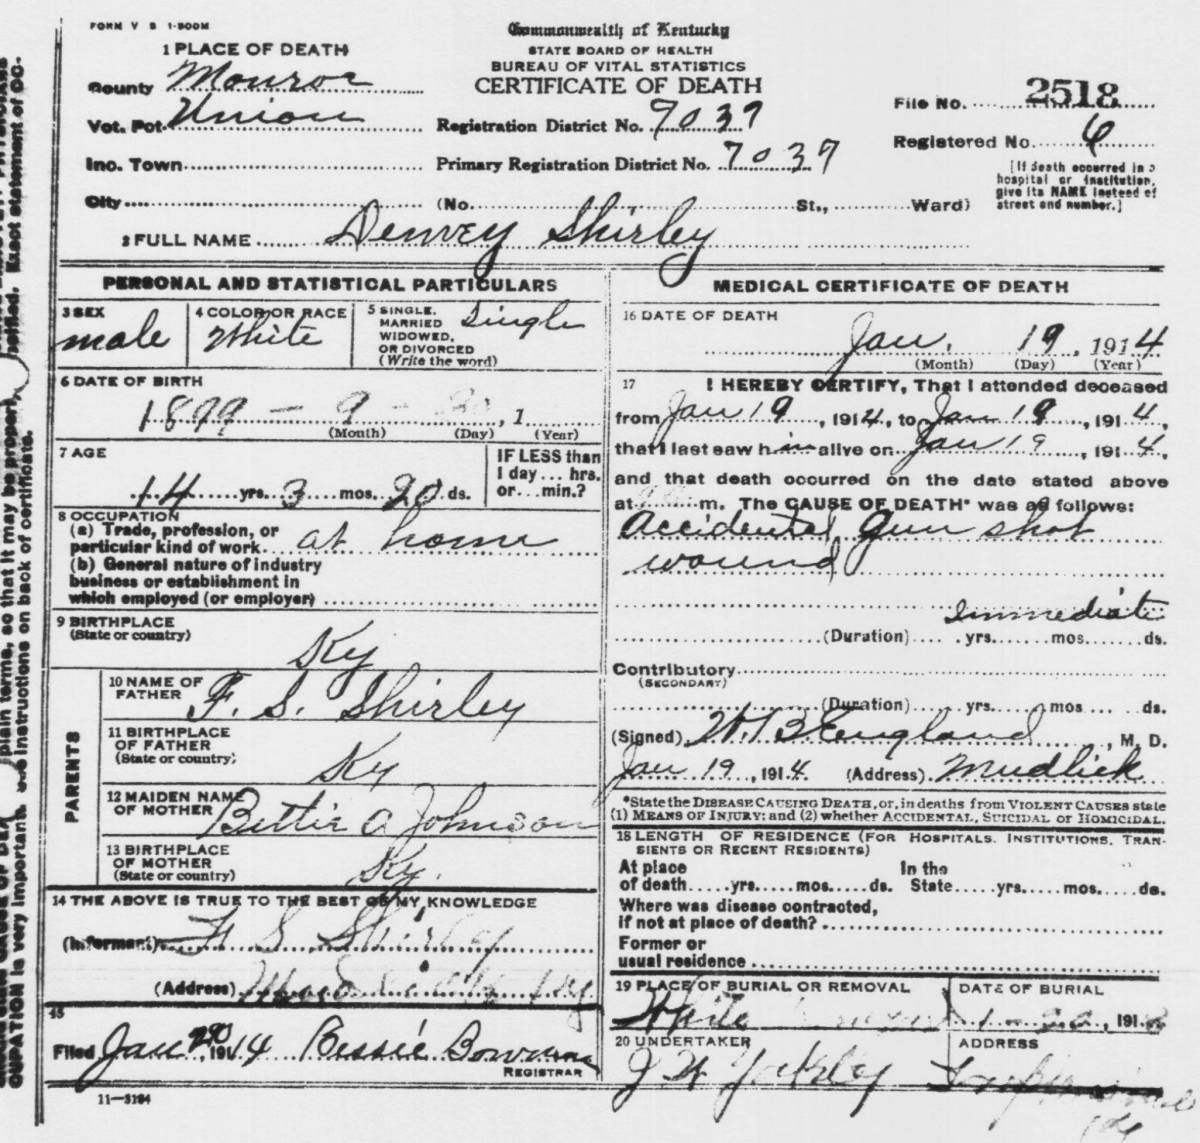 FORM V S 1-500M
Commonwealth of Kentucky
STATE BOARD OF HEALTH
BUREAU OF VITAL STATISTICS
CERTIFICATE OF DEATH
1 PLACE OF DEATH
County Monroe
Vot. Pct. Union
Inc. Town
City
Registration District No. 7037
Primary Registration District No. 7037
(No. St., Ward)
File No. 2518
Registered No. 6
[If death occurred in a
hospital or institution,
give its NAME instead of
street and number.]
2 FULL NAME Dewey Shirley
PERSONAL AND STATISTICAL PARTICULARS
3 SEX
male
4 COLOR OR RACE
White
5 SINGLE,
MARRIED
WIDOWED,
OR DIVORCED
(Write the word)
Single
6 DATE OF BIRTH
1899 - 9 - , 1
(Month) (Day) (Year)
7 AGE
14 yrs. 3 mos. 20 ds.
IF LESS than
1 day... hrs.
or... min.?
8 OCCUPATION
(a) Trade, profession, or
particular kind of work. at home
(b) General nature of industry
business or establishment in
which employed (or employer)
9 BIRTHPLACE
(State or country)
Ky
PARENTS
10 NAME OF
FATHER
F. S. Shirley
11 BIRTHPLACE
OF FATHER
(State or country)
Ky
12 MAIDEN NAME
OF MOTHER
Bettie A Johnson
13 BIRTHPLACE
OF MOTHER
(State or country)
Ky.
14 THE ABOVE IS TRUE TO THE BEST OF MY KNOWLEDGE
(Informant) F S Shirley
(Address) Ky
15
Filed Jan 20 1914 Bessie
REGISTRAR
11—3184
MEDICAL CERTIFICATE OF DEATH
16 DATE OF DEATH
Jan. 19, 1914
(Month) (Day) (Year)
17 I HEREBY CERTIFY, That I attended deceased
from Jan 19, 1914, to Jan 19, 1914,
that I last saw him alive on Jan 19, 1914,
and that death occurred on the date stated above
at m. The CAUSE OF DEATH* was as follows:
Accidental gun shot
wound
Immediate
(Duration) yrs. mos. ds.
Contributory
(SECONDARY)
(Duration) yrs. mos. ds.
(Signed) W. B. England, M. D.
Jan 19, 1914 (Address) Mudlick
*State the DISEASE CAUSING DEATH, or, in deaths from VIOLENT CAUSES state
(1) MEANS OF INJURY; and (2) whether ACCIDENTAL, SUICIDAL or HOMICIDAL.
18 LENGTH OF RESIDENCE (FOR HOSPITALS, INSTITUTIONS, TRAN-
SIENTS OR RECENT RESIDENTS)
At place
of death yrs. mos. ds.
In the
State yrs. mos. ds.
Where was disease contracted,
if not at place of death?
Former or
usual residence
19 PLACE OF BURIAL OR REMOVAL
White
DATE OF BURIAL
1-20, 191
20 UNDERTAKER
J W Yokley
ADDRESS
Ky
OCCUPATION is very important. See instructions on back of certificate.
plain terms, so that it may be properly classified. Exact statement of OC-